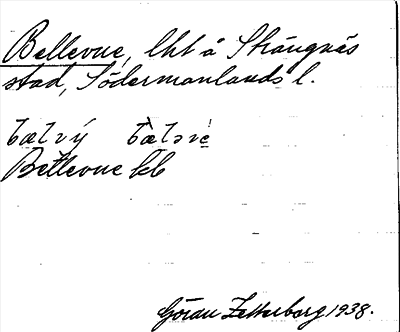 Bellevue, lht å Strängnäs
stad, Södermanlands l.
Bellevue kb
Göran Zetterborg 1938.